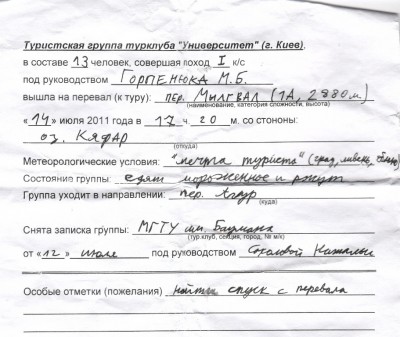 Туристская группа турклуба "Университет" (г. Киев),
в составе 13 человек, совершая поход I к/с
под руководством Горпенюка М.Б.
вышла на перевал (к туру): пер. Милгвал (1А, 2880 м)
(наименование, категория сложности, высота)
«14» июля 2011 года в 17 ч. 20 м. со стороны:
оз. Кяфар
(откуда)
Метеорологические условия: "мечта туриста" (град, ливень,
Состояние группы: едят мороженное и ржут
Группа уходит в направлении: пер. Агур
(куда)
Снята записка группы: МГТУ им. Баумана
(тур.клуб, секция, город, № м/к)
от «12» июля под руководством Соколовой Натальи
Особые отметки (пожелания) найти спуск с перевала